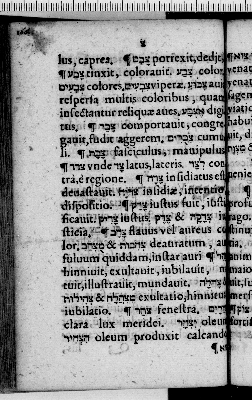 צ
lus, caprea. ¶ צבט porrexit, dedit,
¶ צבע tinxit, colorauit. צבע color
צבעים colores, צבועים viperæ, צבוע aui
respersa multis coloribus, quam
insectantur reliquæ aues. אצבע digi
tus. ¶ צבר comportauit, congre
gauit, fudit aggerem. צברים cumu
li. צבת fasciculus, manipulus
¶ צד vnde צד latus, lateris. לצד con
tra, è regione. ¶ צדה insidiatus est
deuastauit. צדיה insidiæ, intentio,
dispositio. ¶ צדק iustus fuit, iusti
ficauit. צדיק iustus, צדק & צדקה iu
stitia. ¶ צהב flauus vel aureus co
lor, & deauratum, au
fuluum quiddam, instar auri ¶ צהל
hinniuit, exultauit, iubilauit,
tuit, illustrauit, mundauit. צהלה
& exultatio, hinnitus
iubilatio. ¶ צהר fenestra, צהרים
clara lux meridei. יצהר oleum
הצהיר oleum produxit calcando